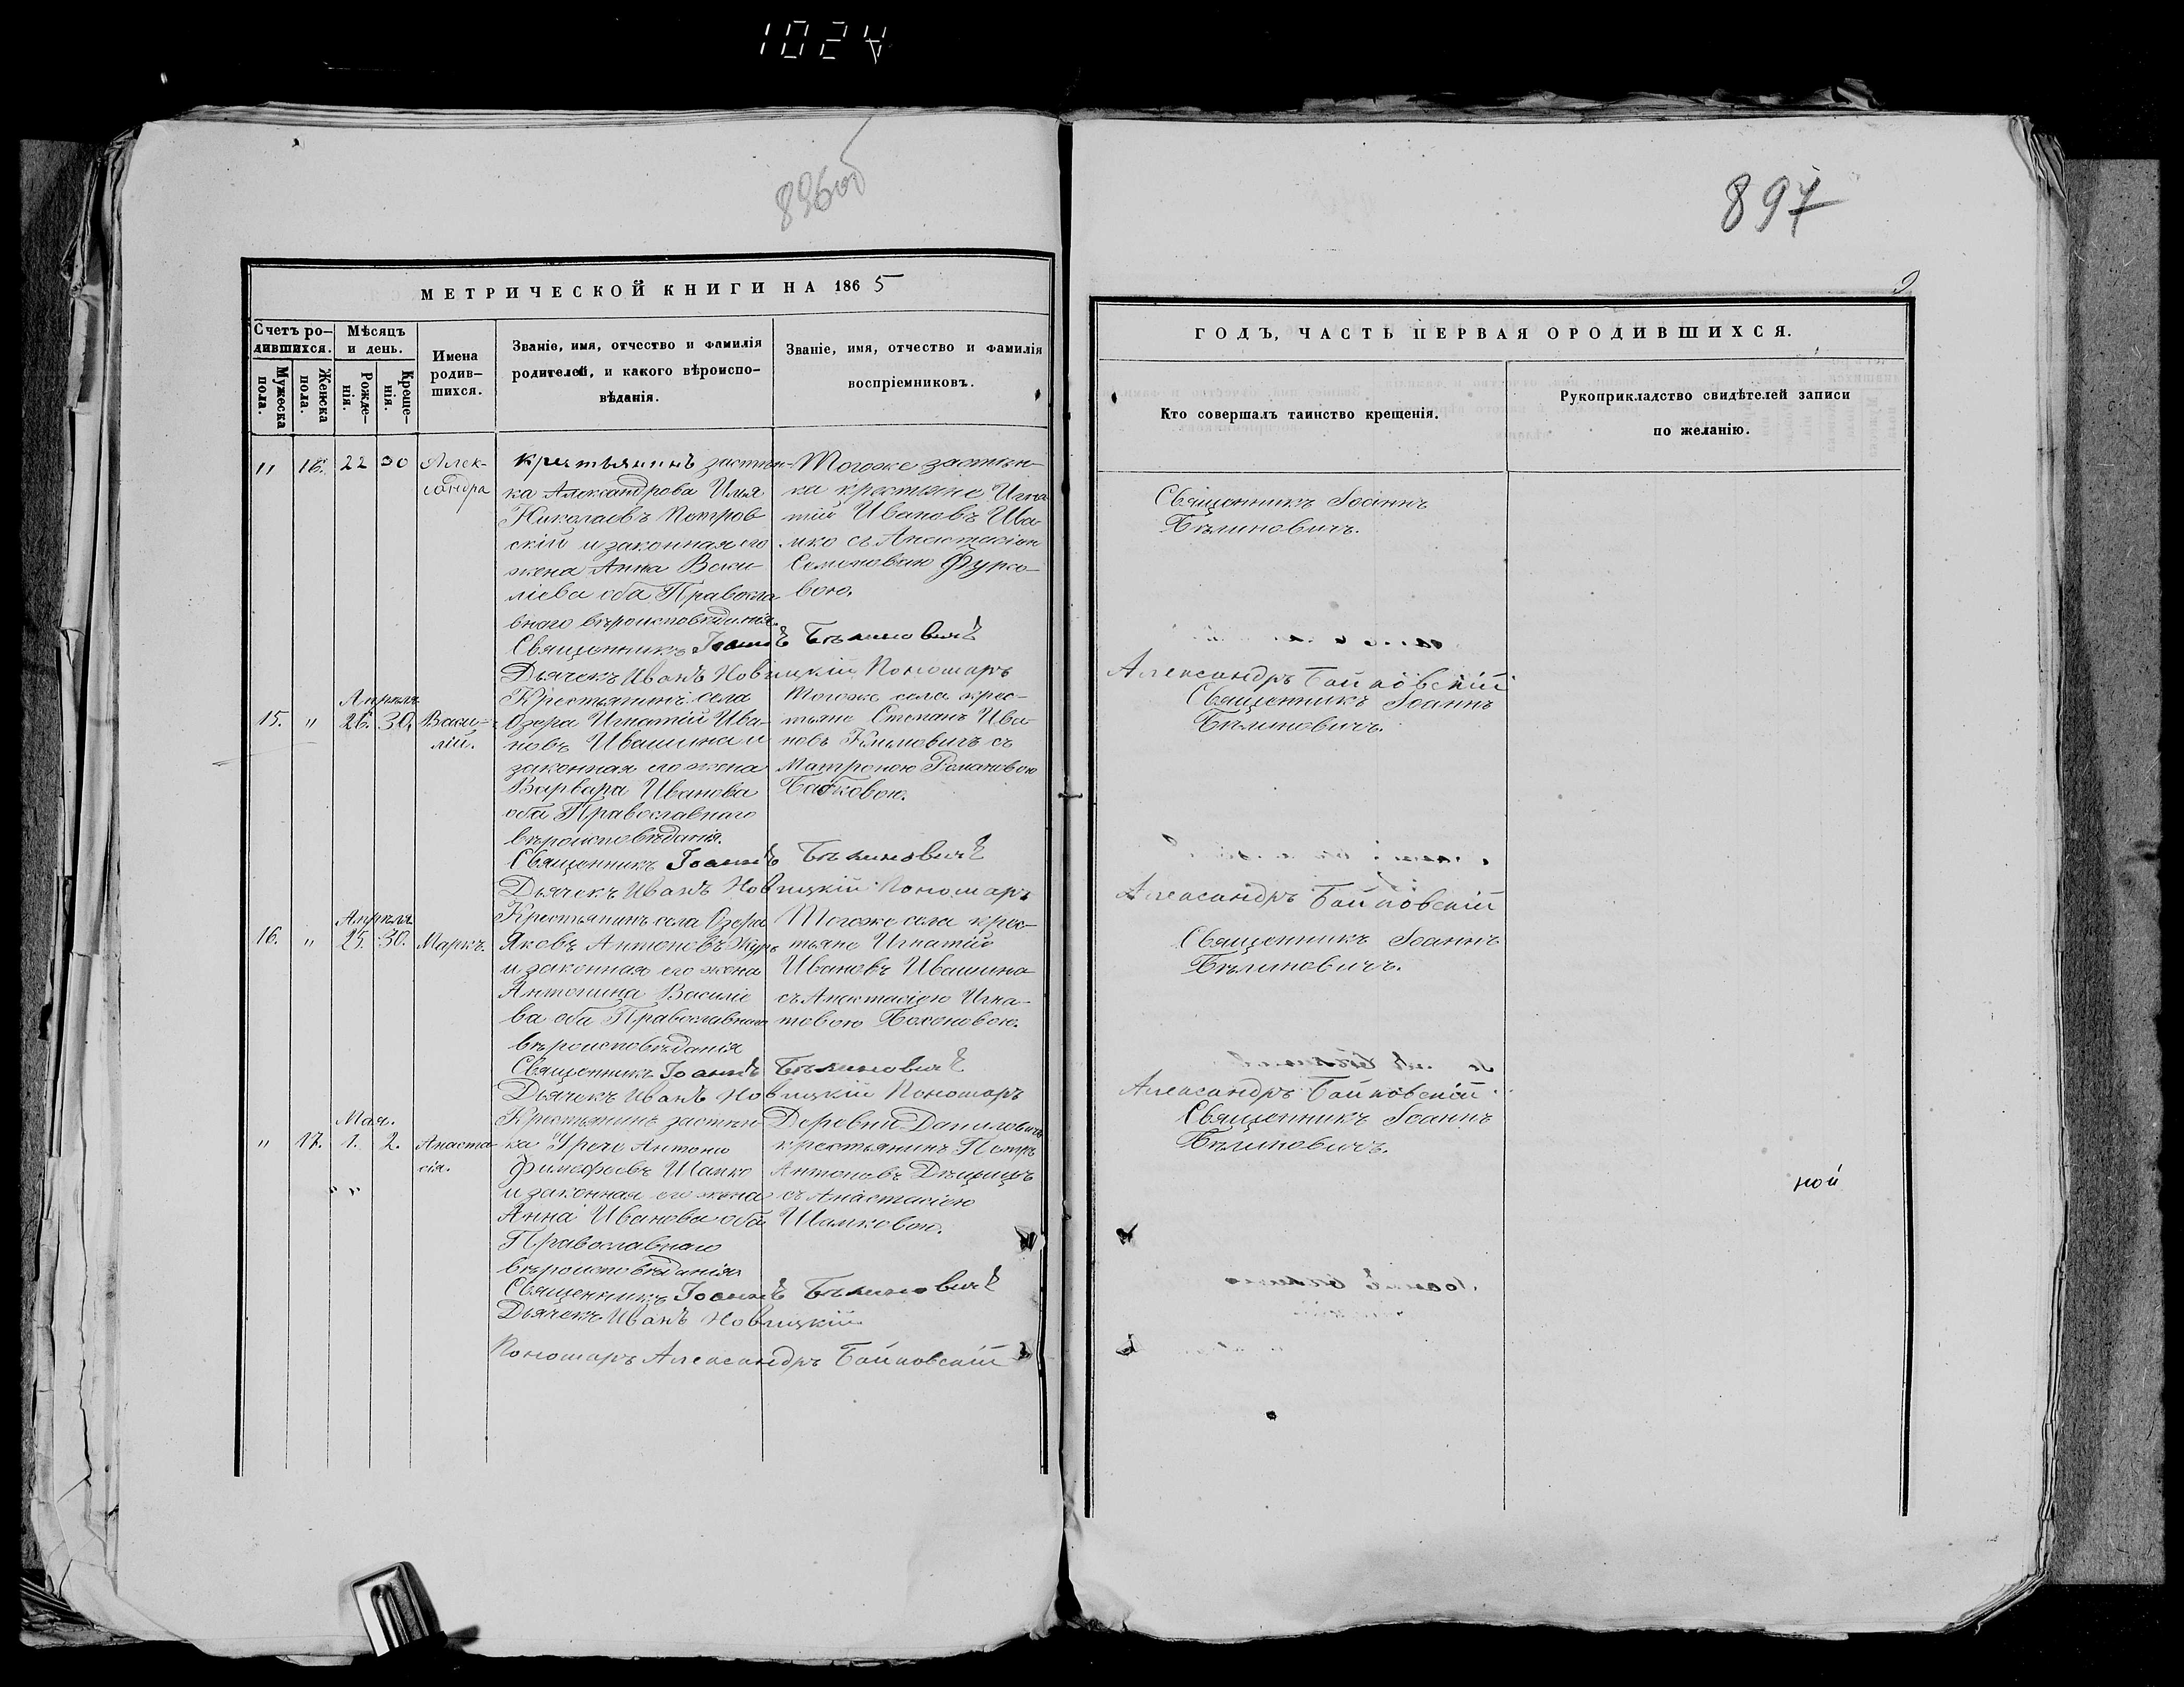 1024
896 об
897
9
МЕТРИЧЕСКОЙ КНИГИ НА 1865
Счетъ ро-
дившихся.
Мужеска
пола.
Женска
пола.
Мѣсяцъ
и день.
Рожде-
нія.
Креще-
нія.
Имена
родив-
шихся.
Званіе, имя, отчество и фамилія
родителей, и какого вѣроиспо-
вѣданія.
Званіе, имя, отчество и фамилія
воспріемниковъ.
ГОДЪ, ЧАСТЬ ПЕРВАЯ О РОДИВШИХСЯ.
Кто совершалъ таинство крещенія.
Рукоприкладство свидѣтелей записи
по желанію.
" 16. 22 30
Алек-
сандра
крестьянинъ застѣн-
ка Александрова Илья
Николаевъ Петров
скій и законная его
жена Анна Васи-
лiева оба Правосла
внаго вѣроисповѣданія.
Тогоже застѣн-
ка крестьяне Игна
тій Ивановъ Ива
съ Анастасіею
Семеновою Фурсо-
вою.
Священникъ Іоаннъ
Бѣлиновичъ.
Священникъ Іоаннъ Бѣлиновичъ
Дьячекъ Иванъ Новицкій Пономарь
Александръ Байковскій
Апрѣля
15. " 26. 30.
Васи-
лій.
Крестьянинъ села
Озера Игнатій Ива-
новъ Ивашина и
законная его жена
Варвара Иванова
оба Православнаго
вѣроисповѣданія.
Тогоже села крес-
тьяне Степанъ Ива-
новъ Климовичъ съ
Матроною Романовою
Бабковою.
Священникъ Іоаннъ
Бѣлиновичъ.
Священникъ Іоаннъ Бѣлиновичъ
Дьячекъ Иванъ Новицкій Пономарь
Александръ Байковскій
Апрѣля
16. " 25. 30.
Маркъ.
Крестьянинъ села Озера
Яковъ Антоновъ Жукъ
и законная его жена
Антонина Василіе
ва оба Православнаго
вѣроисповѣданія
Тогоже села крес-
тьяне Игнатій
Ивановъ Ивашина
съ Анастасіею Игна-
товою
Священникъ Іоаннъ
Бѣлиновичъ.
Священникъ Іоаннъ Бѣлиновичъ
Дьячекъ Иванъ Новицкій Пономарь
Александръ Байковскій
Мая.
" 17. 1. 2.
Анаста-
сія.
Крестьянинъ застѣн-
ка Уречe Антонъ
Шамко
и законная его жена
Анна Иванова оба
Православнаго
вѣроисповѣданія
Деревни Даниловичъ
крестьянинъ Петръ
Антоновъ
съ Анастасіею
Шамковою.
Священникъ Іоаннъ
Бѣлиновичъ.
ной
Священникъ Іоаннъ Бѣлиновичъ
Дьячекъ Иванъ Новицкій
Пономарь Александръ Байковскій